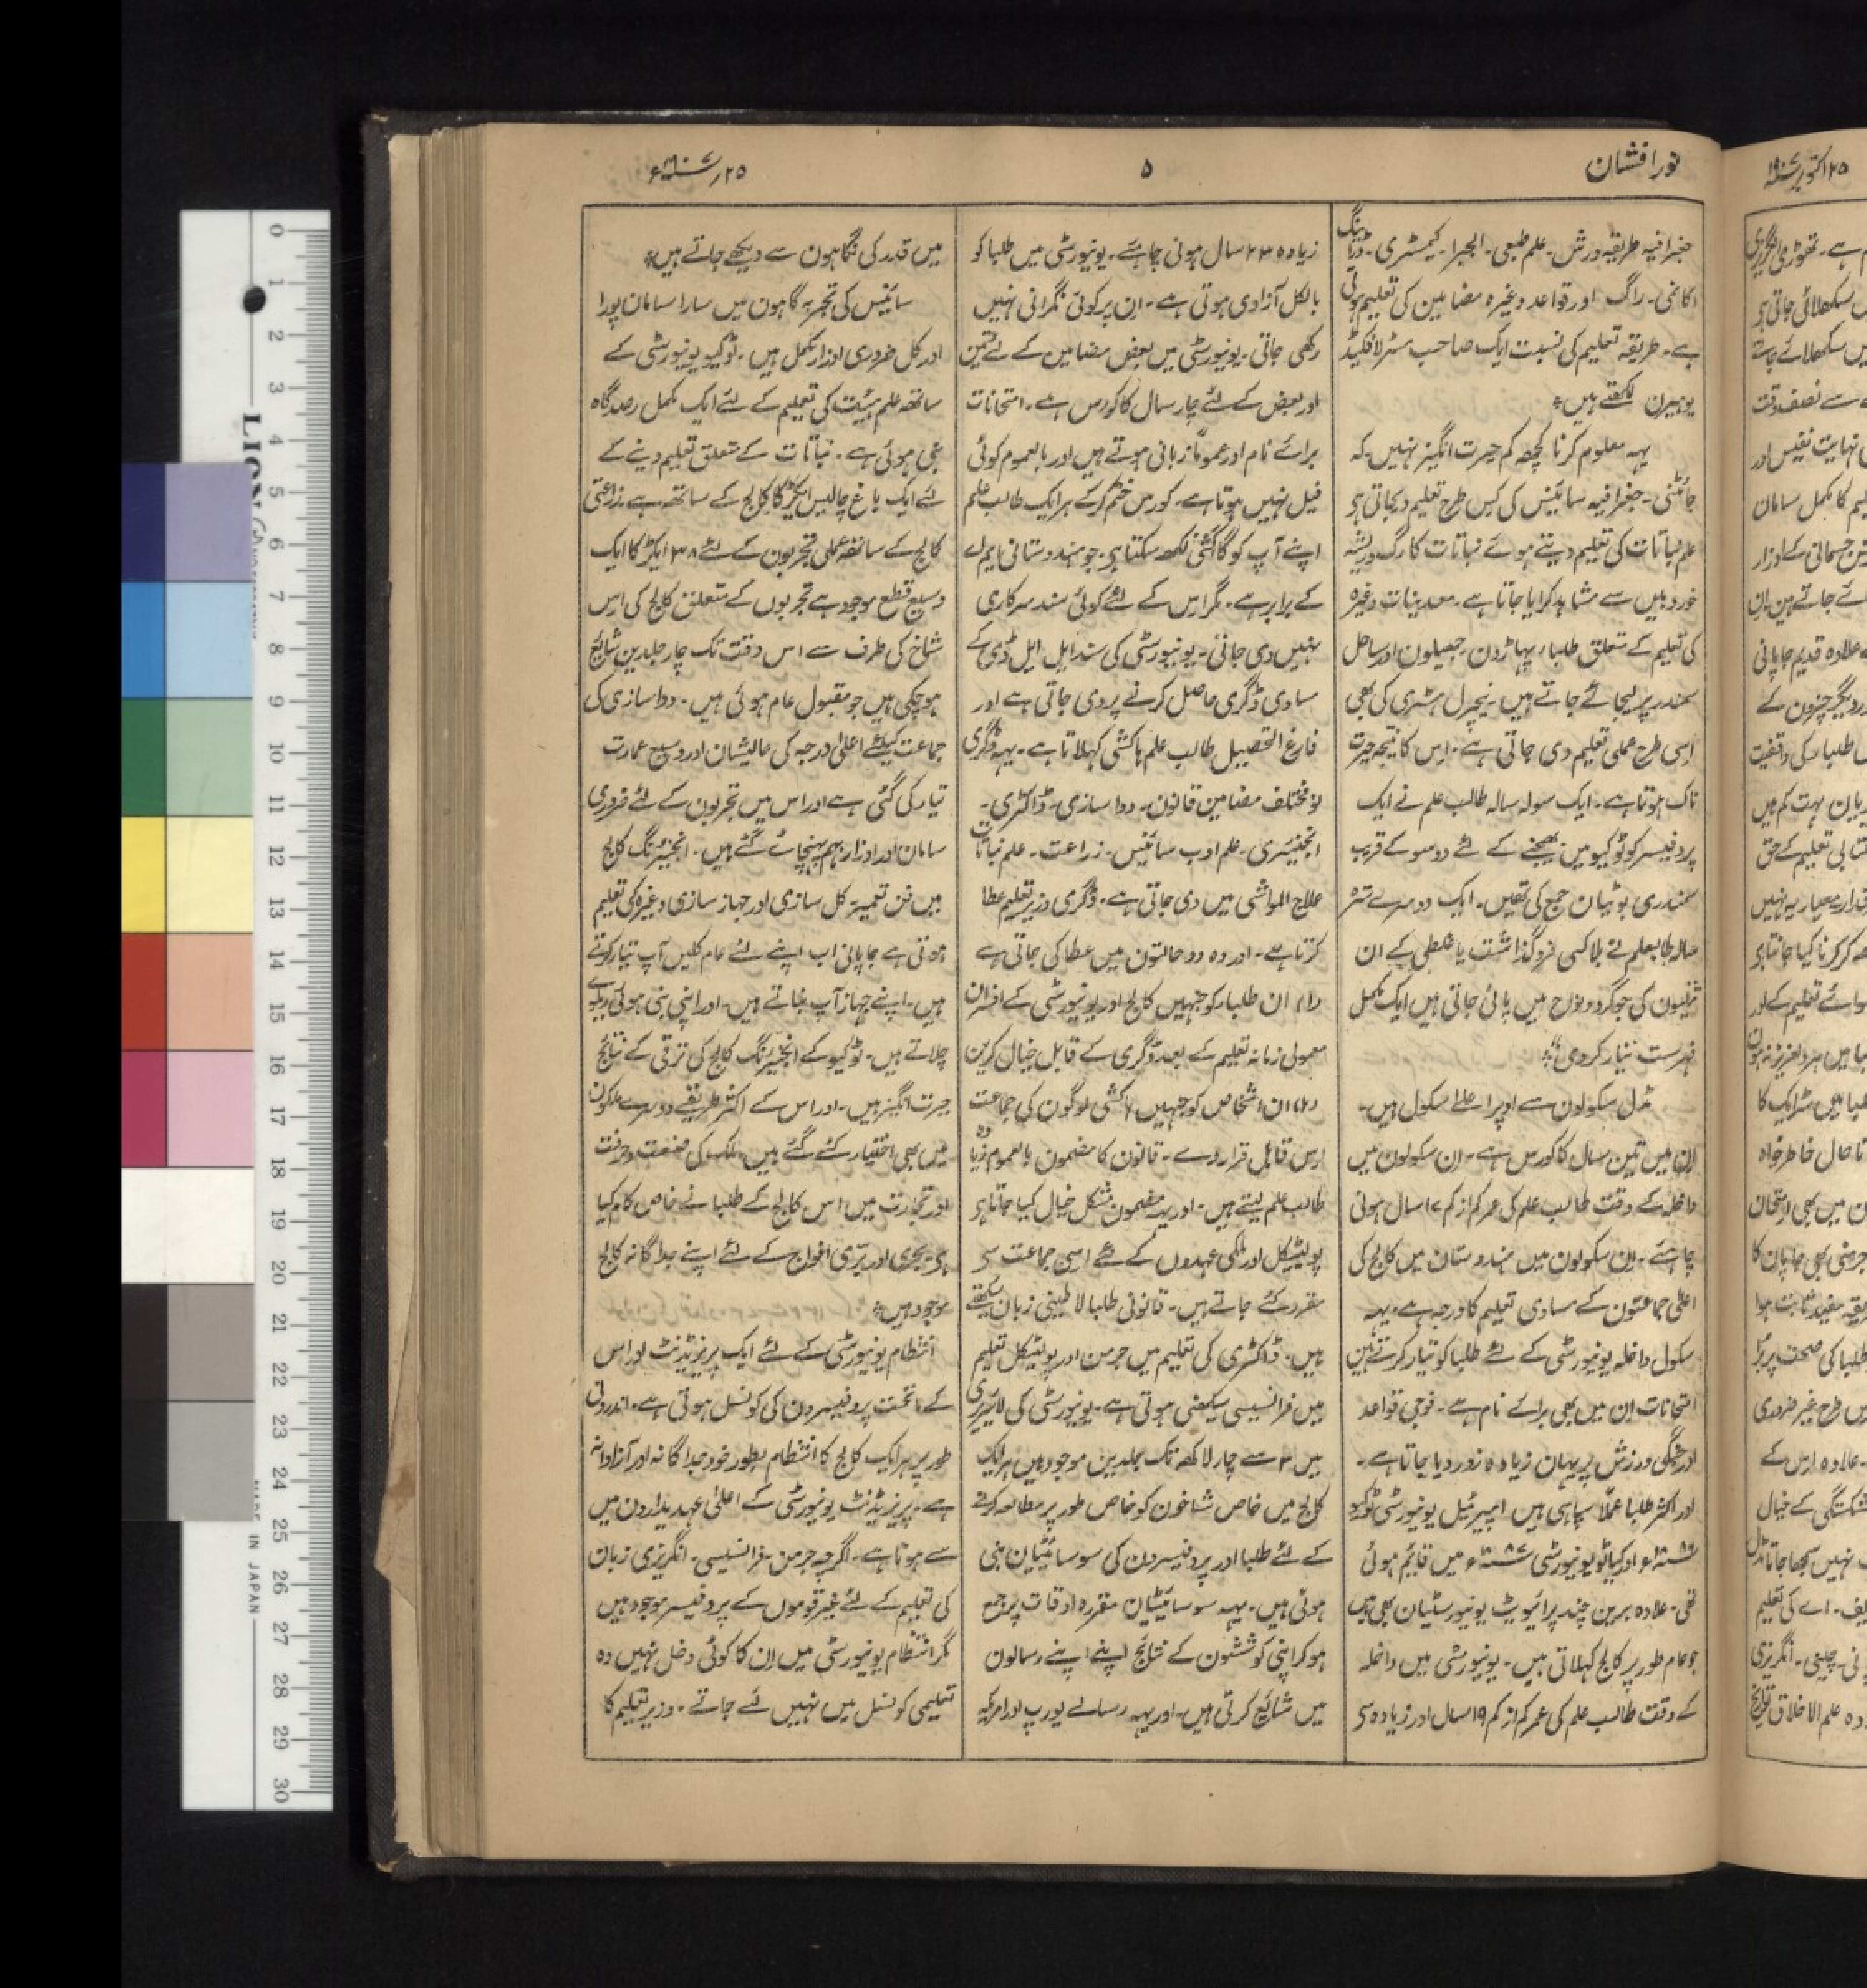 نورافشان
۵
۲۵؍ ۱۹۰۷ء
جغرافیہ طریقہ ورزش۔ علم طبعی۔ الجبرا۔ کیمسٹری۔ ڈرائینگ
اکانمی۔ راگ اور قواعد وغیرہ مضامین کی تعلیم ہوتی
ہے۔ طریقہ تعلیم کی نسبت ایک صاحب مسٹر لافکیڈ
یوہیرن لکھتے ہیں٭
یہہ معلوم کرنا کچھہ کم حیرت انگیز نہیں۔ کہ
جاٹنی۔ جغرافیہ سائینس کی کس طرح تعلیم دیجاتی ہی
علم نباتات کی تعلیم دیتے ہوئے نباتات کا رگ و ریشہ
خوردبین سے مشاہد کرایا جاتا ہے۔ معدینات وغیرہ
کی تعلیم کے متعلق طلبار پہاڑون۔ جھیلون اور ساحل
سمندر پر لیجائے جاتے ہیں۔ نیچرل ہسٹری کی بھی
اسی طرح عملی تعلیم دی جاتی ہے۔ اس کا نتیجہ حیرت
ناک ہوتا ہے۔ ایک سولہ سالہ طالب علم نے ایک
پروفیسر کو ٹوکیو میں بھیجنے کے لئے دو سو کے قریب
سمندری بوٹیان جمع کی تھیں۔ ایک دوسرے سترہ
سالہ طالبعلم نے بلا کسی فروگذاشت یا غلطی کے ان
تتلیون کی جو گرد و نواح میں پائی جاتی ہیں ایک مکمل
فہرست تیار کردی٭
مڈل سکولون سے اوپر اعلےٰ سکول ہیں۔
ان میں تین سال کا کورس ہے۔ ان سکولون میں
داخلہ کے وقت طالب علم کی عمر کم از کم ۱۷ سال ہونی
چاہئے۔ ان سکولون میں ہندوستان میں کالج کی
اعلےٰ جماعتون کے مساوی تعلیم کا درجہ ہے۔ یہہ
سکول داخلہ یونیورسٹی کے لئے طلبا کو تیار کرتے ہین
امتحانات ان میں بھی برائے نام ہے۔ فوجی قواعد
اور جنگی ورزش پر یہان زیادہ زور دیا جاتا ہے۔
اور اکثر طلبا عملاً سپاہی ہیں امپیرئیل یونیورسٹی ٹوکیو
۱۸۸۶ء اور کیاٹو یونیورسٹی ۱۸۹۷ء میں قائیم ہوئی
تھی۔ علاوہ برین چند پرائیویٹ یونیورسٹیان بھی ہیں
جو عام طور پر کالج کہلاتی ہیں۔ یونیورسٹی میں داخلہ
کے وقت طالب علم کی عمر کم از کم ۱۹ سال اور زیادہ سی
زیادہ ۲۳ سال ہونی چاہئے۔ یونیورسٹی میں طلبا کو
بالکل آزادی ہوتی ہے۔ ان پر کوئی نگرانی نہیں
رکھی جاتی۔ یونیورسٹی میں بعض مضامین کے لئے تین
اور بعض کے لئے چار سال کا کورس ہے۔ امتحانات
برائے نام اور عموماً زبانی ہوتے ہیں اور بالعموم کوئی
فیل نہیں ہوتا ہے۔ کورس ختم کرکے ہر ایک طالب علم
اپنے آپ کو گاکشی لکھہ سکتا ہی۔ جو ہندوستانی ایم اے
کے برابر ہے۔ مگر اس کے لئے کوئی سند سرکاری
نہیں دی جاتی۔ یونیورسٹی کی سند ایل ایل ڈی کے
مساوی ڈگری حاصل کرنے پر دی جاتی ہے اور
فارغ التحصیل طالب علم ہاکشی کہلاتا ہے۔ یہہ ڈگری
نو مختلف مضامین قانون۔ دواسازی۔ ڈاکٹری۔
انجنیئری۔ علم ادب سائینس۔ زراعت۔ علم نباتات
علاج المواشی میں دی جاتی ہے۔ ڈگری وزیر تعلیم عطا
کرتا ہے۔ اور وہ دو حالتون میں عطا کی جاتی ہے
(۱) ان طلبار کو جنہیں کالج اور یونیورسٹی کے افسران
معمولی زمانہ تعلیم کے بعد ڈگری کے قابل خیال کرین
(۲) ان اشخاص کو جنہیں ہاکشی لوگون کی جماعت
اس قابل قرار دے۔ قانون کا مضمون بالعموم زیادہ
طالب علم لیتے ہیں۔ اور یہہ مضمون مشکل خیال کیا جاتا ہی
پولیٹیکل اور ملکی عہدوں کے لئے اسی جماعت سی
مقرر کئے جاتے ہیں۔ قانونی طلبا لاطینی زبان سیکھتے
ہیں۔ ڈاکٹری کی تعلیم میں جرمن اور پولیٹیکل تعلیم
میں فرانسیسی سیکھنی ہوتی ہے۔ یونیورسٹی کی لائبریری
میں ۳ سے چار لاکھہ تک جلدین موجود ہیں ہر ایک
کالج میں خاص شاخون کو خاص طور پر مطالعہ کرنے
کے لئے طلبا اور پروفیسرون کی سوسائیٹیان بنی
ہوئی ہیں۔ یہہ سوسائیٹیان مقررہ اوقات پر جمع
ہوکر اپنی کوششون کے نتائج اپنے اپنے رسالون
میں شائع کرتی ہیں۔ اور یہہ رسالے یورپ اور امریکہ
میں قدر کی نگاہون سے دیکھے جاتے ہیں٭
سائینس کی تجربہ گاہون میں سارا سامان پورا
اور کل ضروری اوزار مکمل ہیں۔ ٹوکیو یونیورسٹی کے
ساتھہ علم ہیئت کی تعلیم کے لئے ایک مکمل رصدگاہ
بنی ہوئی ہے۔ نباتات کے متعلق تعلیم دینے کے
لئے ایک باغ چالیس ایکڑ کا کالج کے ساتھہ ہے۔ زراعتی
کالج کے ساتھہ عملی تجربون کے لئے ۳۸ ایکڑ کا ایک
وسیع قطع موجود ہے تجربوں کے متعلق کالج کی اس
شاخ کی طرف سے اس وقت تک چار جلدین شائع
ہوچکی ہیں جو مقبول عام ہوئی ہیں۔ دواسازی کی
جماعت کیلئے اعلےٰ درجہ کی عالیشان اور وسیع عمارت
تیار کی گئی ہے اور اس میں تجربون کے لئے ضروری
سامان اور اوزار بہم پہنچائے گئے ہیں۔ انجنیئرنگ کالج
میں فن تعمیر۔ کل سازی اور جہاز سازی وغیرہ کی تعلیم
ہوتی ہے جاپانی اب اپنے لئے عام کلیں آپ تیار کرتے
ہیں۔ اپنے جہاز آپ بناتے ہیں۔ اور اپنی بنی ہوئی ریلوے
چلاتے ہیں۔ ٹوکیو کے انجنیئرنگ کالج کی ترقی کے نتائج
حیرت انگیز ہیں۔ اور اس کے اکثر طریقے دوسرے ملکون
میں بھی اختیار کئے گئے ہیں۔ ملک کی صنعت و حرفت
اور تجارت میں اس کالج کے طلبا نے خاص کام کیا
ہی۔ بحری اور بری افواج کے لئے اپنے جداگانہ کالج
موجود ہیں٭
انتظام یونیورسٹی کے لئے ایک پریزیڈنٹ اور اس
کے ماتحت پروفیسرون کی کونسل ہوتی ہے۔ اندرونی
طور پر ہر ایک کالج کا انتظام بطور خود جداگانہ اور آزادانہ
ہے۔ پریزیڈنٹ یونیورسٹی کے اعلےٰ عہدیدارون میں
سے ہوتا ہے۔ اگرچہ جرمن۔ فرانسیسی۔ انگریزی زبان
کی تعلیم کے لئے غیر قوموں کے پروفیسر موجود ہیں
مگر انتظام یونیورسٹی میں ان کا کوئی دخل نہیں وہ
تعلیمی کونسل میں نہیں لئے جاتے۔ وزیر تعلیم کا
LION
MADE IN JAPAN